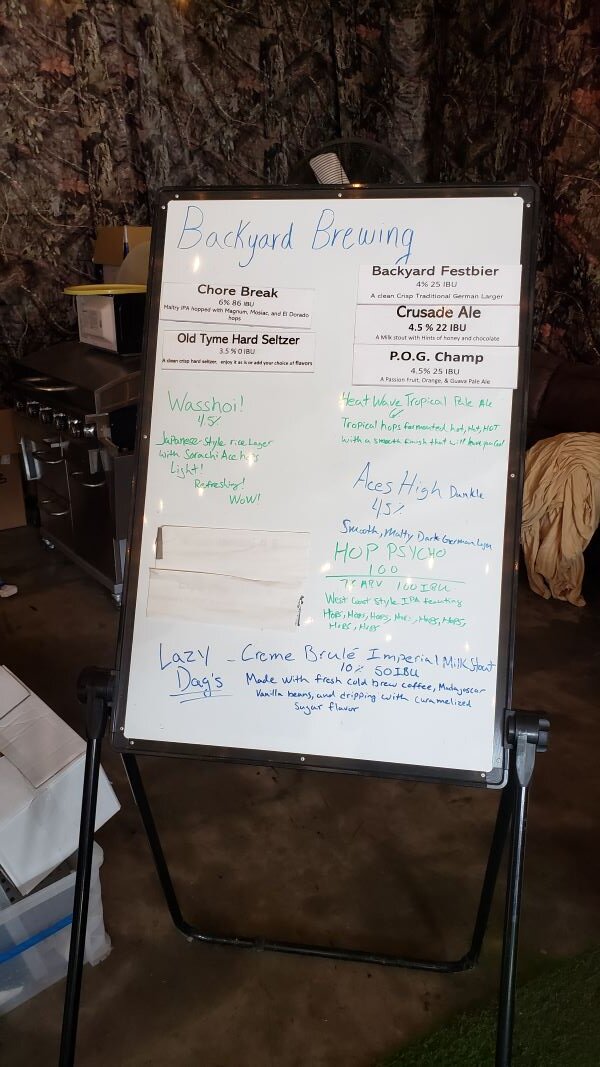 Backyard Brewing
Chore Break
6% 86 IBU
Maltry IPA hopped with Magnum, Mosiac, and El Dorado
hops
Old Tyme Hard Seltzer
3.5 % 0 IBU
A clean crisp hard seltzer. enjoy it as is or add your choice of flavors
Backyard Festbier
4% 25 IBU
A clean Crisp Traditional German Larger
Crusade Ale
4.5 % 22 IBU
A Milk stout with Hints of honey and chocolate
P.O.G. Champ
4.5% 25 IBU
A Passion Fruit, Orange, & Guava Pale Ale
Wasshoi!
4.5%
Japanese style rice lager
with Sorachi Ace hops
Light!
Refreshing!
WOW!
Heat Wave Tropical Pale Ale
Tropical hops fermented hot, Hot, HOT
with a smooth finish that will have you Cool
Aces High Dunkle
4.5%
Smooth, Malty Dark German Lager
HOP PSYCHO
100
7% ABV 100 IBU
West Coast Style IPA featuring
Hops, Hops, Hops, Hops, Hops, Hops,
Hops, Hops
Lazy - Creme Brulé Imperial Milk Stout
Dag's 10% 50 IBU
Made with fresh cold brew coffee, Madagascar
Vanilla beans, and dripping with caramelized
Sugar flavor